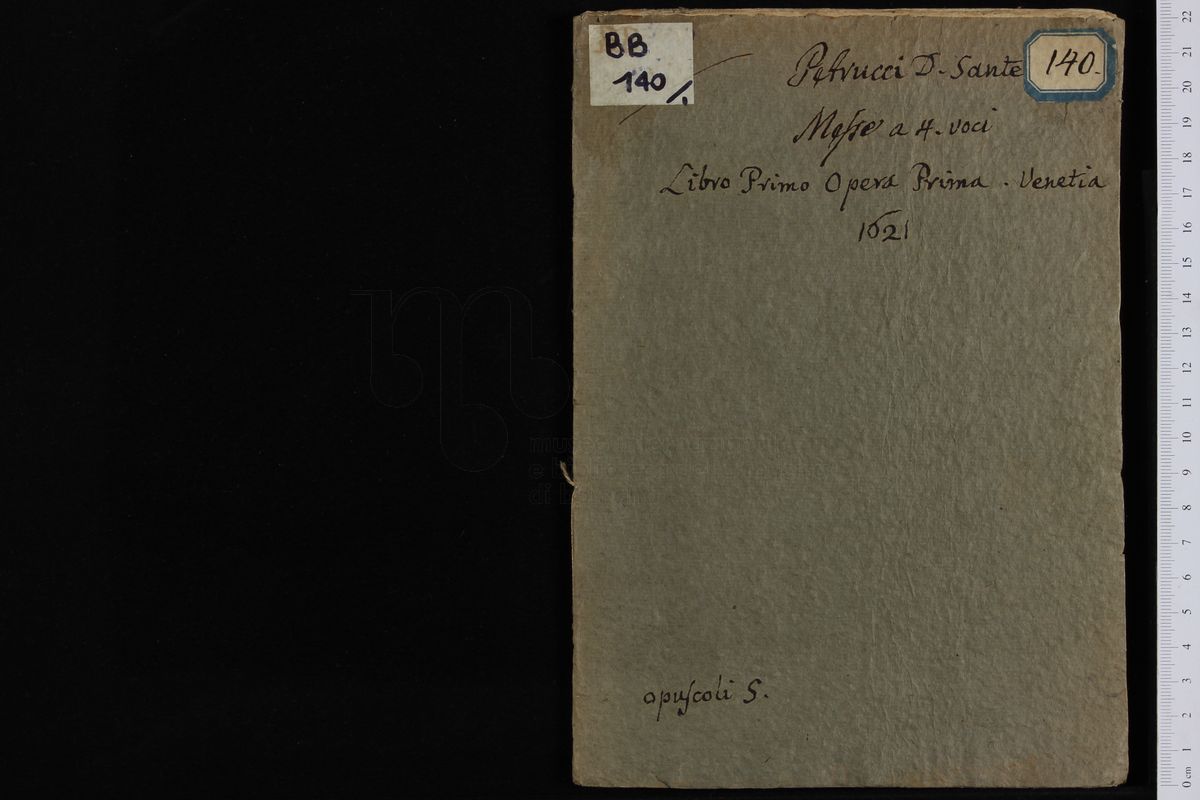 BB
140/1
140.
Petrucci D. Sante
Messe a 4. voci
Libro Primo Opera Prima . Venetia
1621
opuscoli 5.
0 cm 1 2 3 4 5 6 7 8 9 10 11 12 13 14 15 16 17 18 19 20 21 22